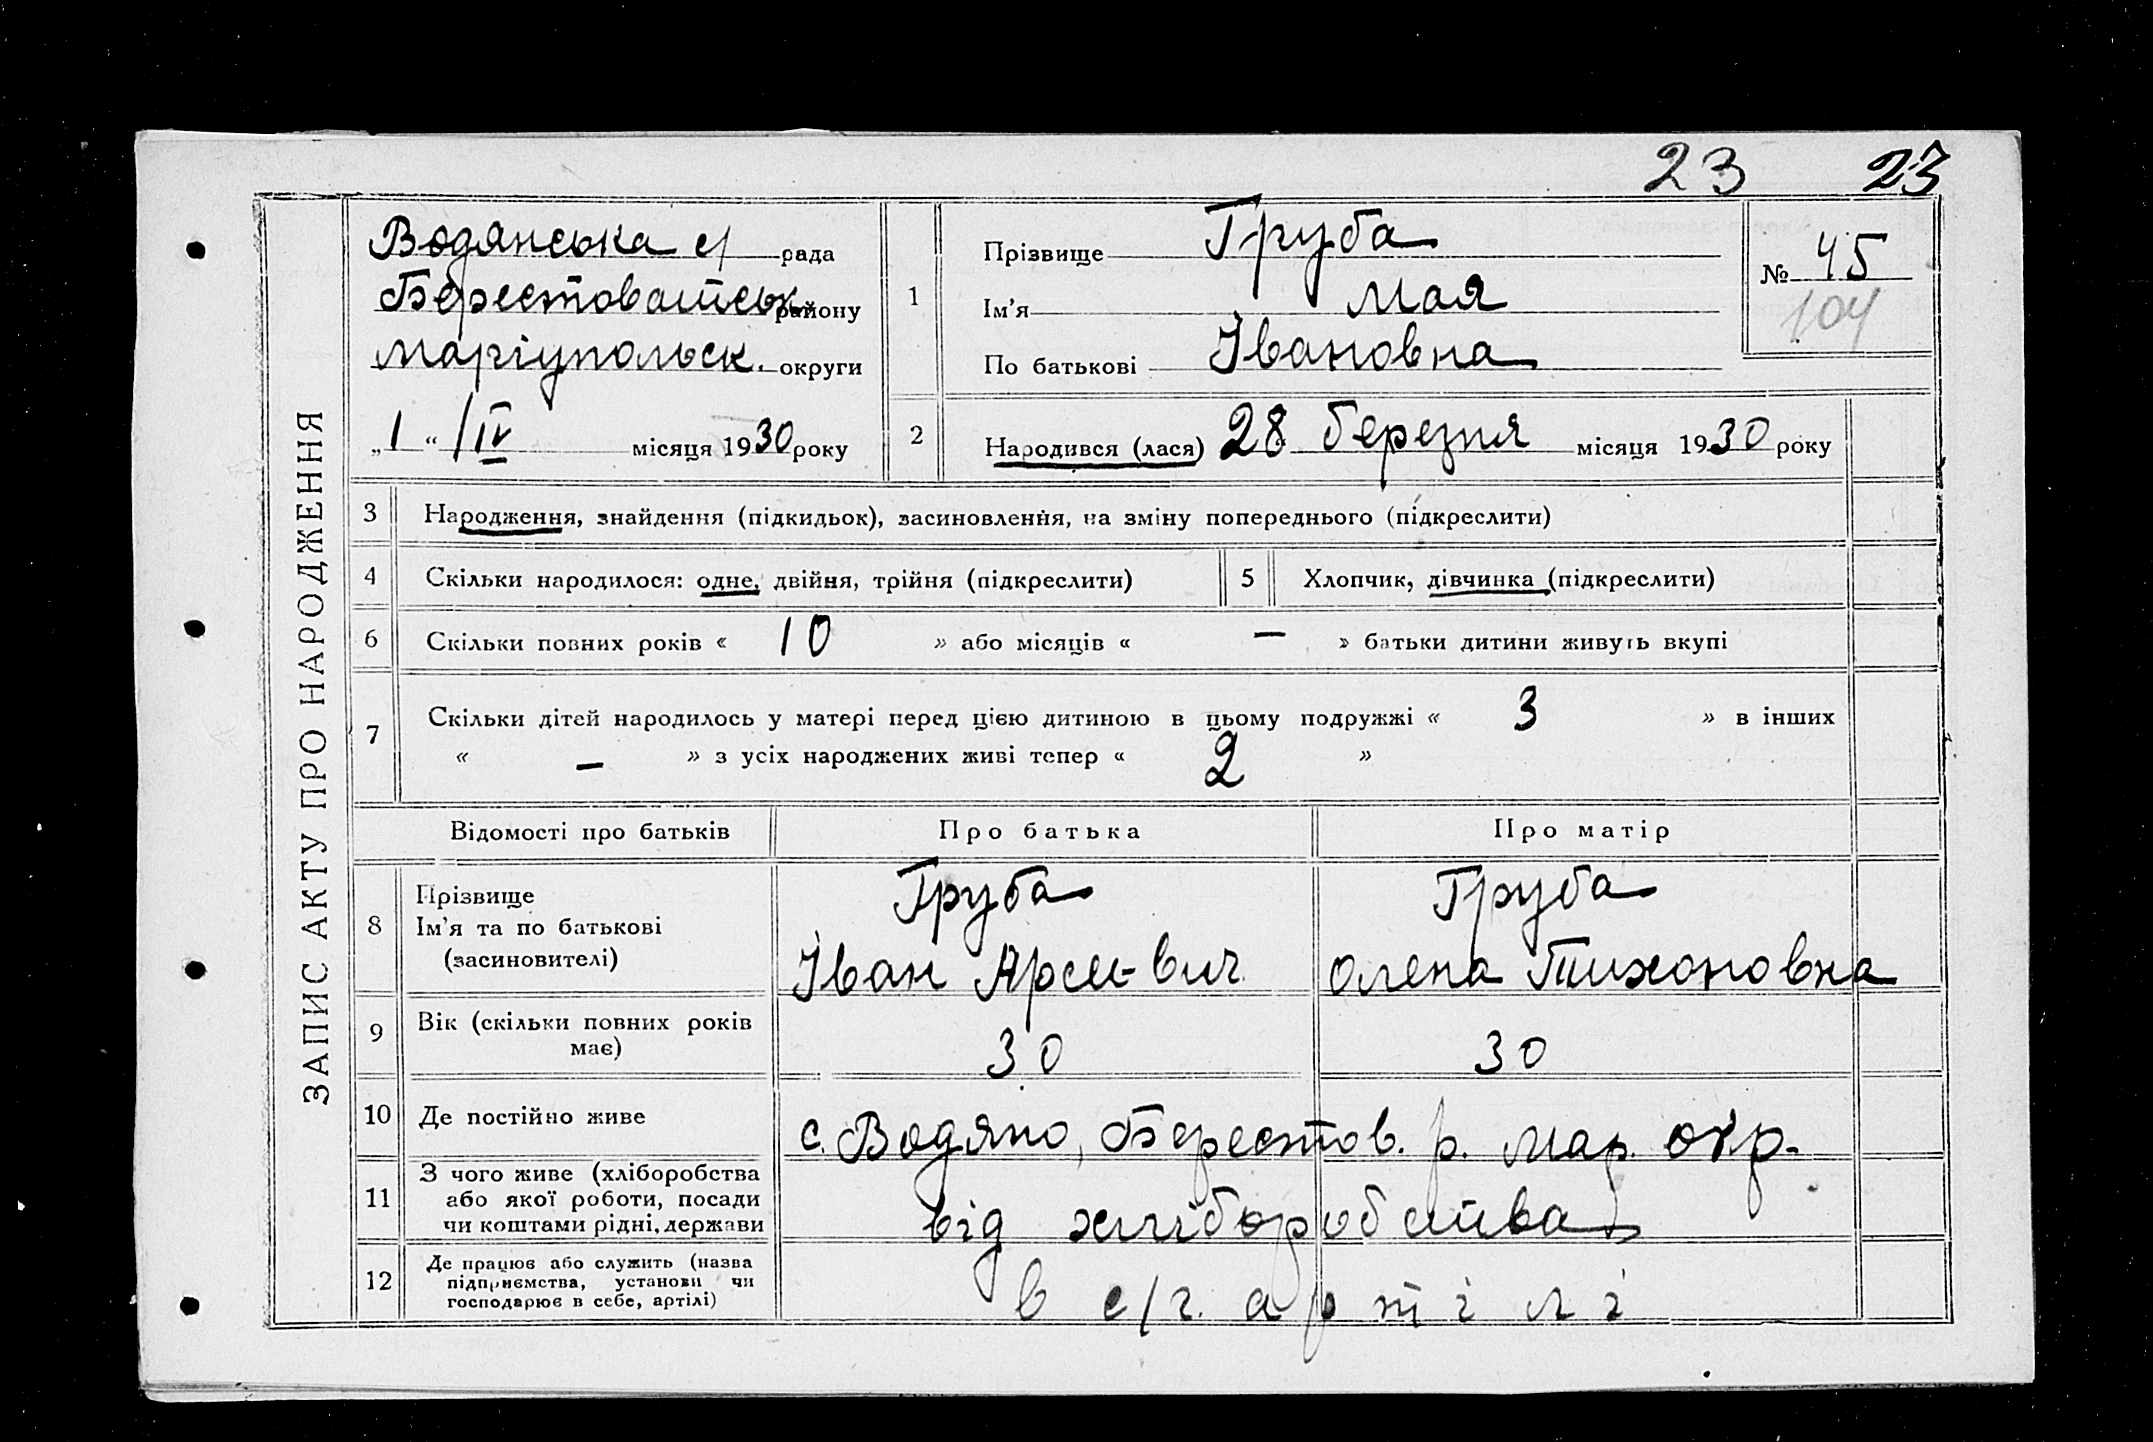 23 23
ЗАПИС АКТУ ПРО НАРОДЖЕННЯ
Водянська с/ рада
Берестоватськ. району
Маріупольск. округи
„1“ /IV місяця 1930 року
1
Прізвище Груба
Ім'я Мая
По батькові Івановна
№ 45
104
2
Народився (лася) 28 березня місяця 1930 року
3 Народження, знайдення (підкидьок), засиновлення, на зміну попереднього (підкреслити)
4 Скільки народилося: одне, двійня, трійня (підкреслити) 5 Хлопчик, дівчинка (підкреслити)
6 Скільки повних років « 10 » або місяців « — » батьки дитини живуть вкупі
7 Скільки дітей народилось у матері перед цією дитиною в цьому подружжі « 3 » в інших
« — » з усіх народжених живі тепер « 2 »
Відомості про батьків Про батька Про матір
8 Прізвище Груба Груба
Ім'я та по батькові
(засиновителі) Іван Арсе-вич Олена Тихоновна
9 Вік (скільки повних років
має) 30 30
10 Де постійно живе с. Водяно, Берестов. р. Мар. окр.
11 З чого живе (хліборобства
або якої роботи, посади
чи коштами рідні, держави від хліборобства
12 Де працює або служить (назва
підприємства, установи чи
господарює в себе, артілі) в с/г. артілі